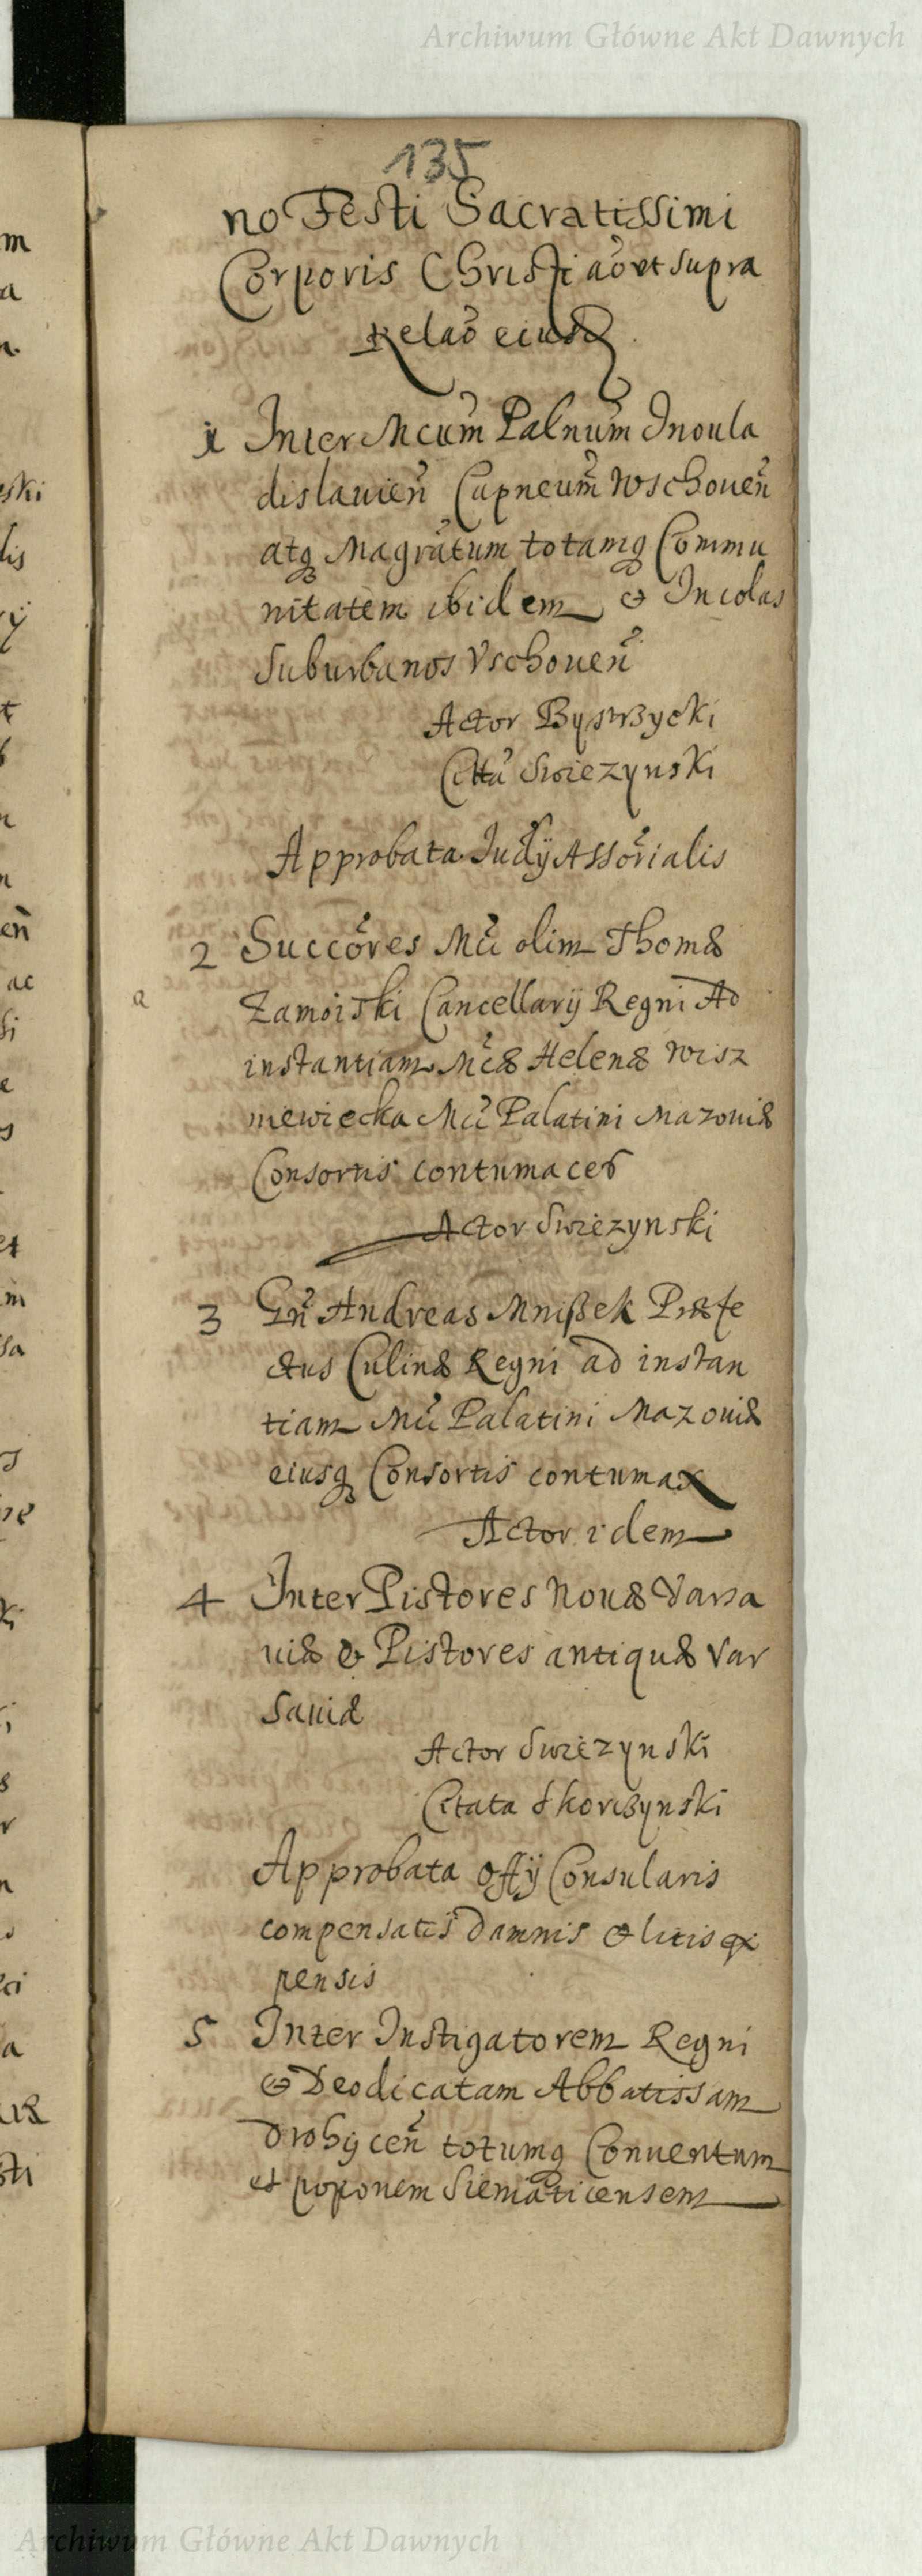 Archiwum Główne Akt Dawnych
135
no Festi Sacratissimi
Corporis Christi aõ ut supra
Relaõ eiusd
1 Inter Mcum Palnum Inoula
dislauien̄ Capneum Wschouen̄
atq Magratum totamq Commu
nitatem ibidem & Incolas
Suburbanos Vschouen̄
Actor Bystrzycki
Citta Swiezynski
Approbata Judÿ Assorialis
2 Succores Mci olim Thomæ
a
Zamoiski Cancellarÿ Regni Ad
instantiam Mcæ Helenæ Wisz
niewiecka Mci Palatini Mazouiæ
Consortis contumaces
Actor Swiezynski
3 Gn̄ Andreas Mniszek Præfe
ctus Culinæ Regni ad instan
tiam Mci Palatini Mazouiæ
eiusq Consortis contumax
Actor idem
4 Inter Pistores Nouæ Varsa
uiæ & Pistores antiquæ Var
sauiæ
Actor Swiezynski
Citata Skorczynski
Approbata Offÿ Consularis
compensatis damnis & litis ex
pensis
5 Inter Instigatorem Regni
& Deodicatam Abbatissam
Drohÿcen̄ totumq Conuentum
et poponem Siematicensem
Archiwum Główne Akt Dawnych